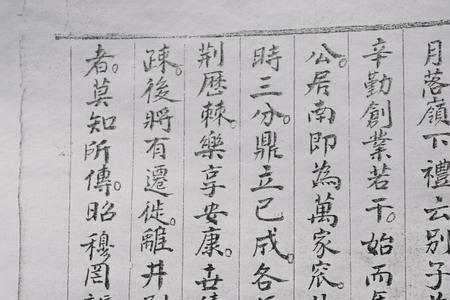 月落嶺下禮云別子
辛勤創業若干。始而
公。居南即為萬家。
時三分。鼎立已成。各
荆歷棘。樂享安康。
疎後將有遷徙。離井別
者。莫知所傳。昭穆罔